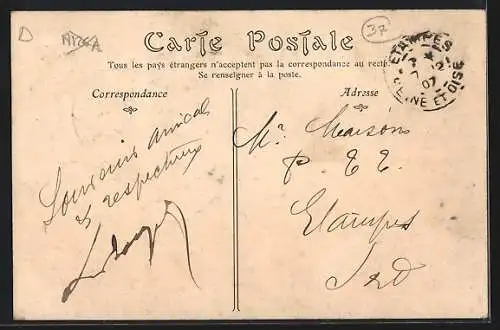 D
37
Carte Postale
Tous les pays étrangers n'acceptent pas la correspondance au recto.
Se renseigner à la poste.
ETAMPES
7 - 12
07
SEINE ET OISE
Correspondance
Souvenir amical
et respectueux
Adresse
Mr.
P. T. T.
Etampes